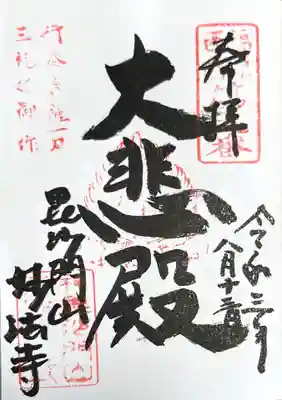 奉拝
令和三年
八月十三日
大悲殿
毘沙門山
妙法寺
行基菩薩一刀
三礼之御作